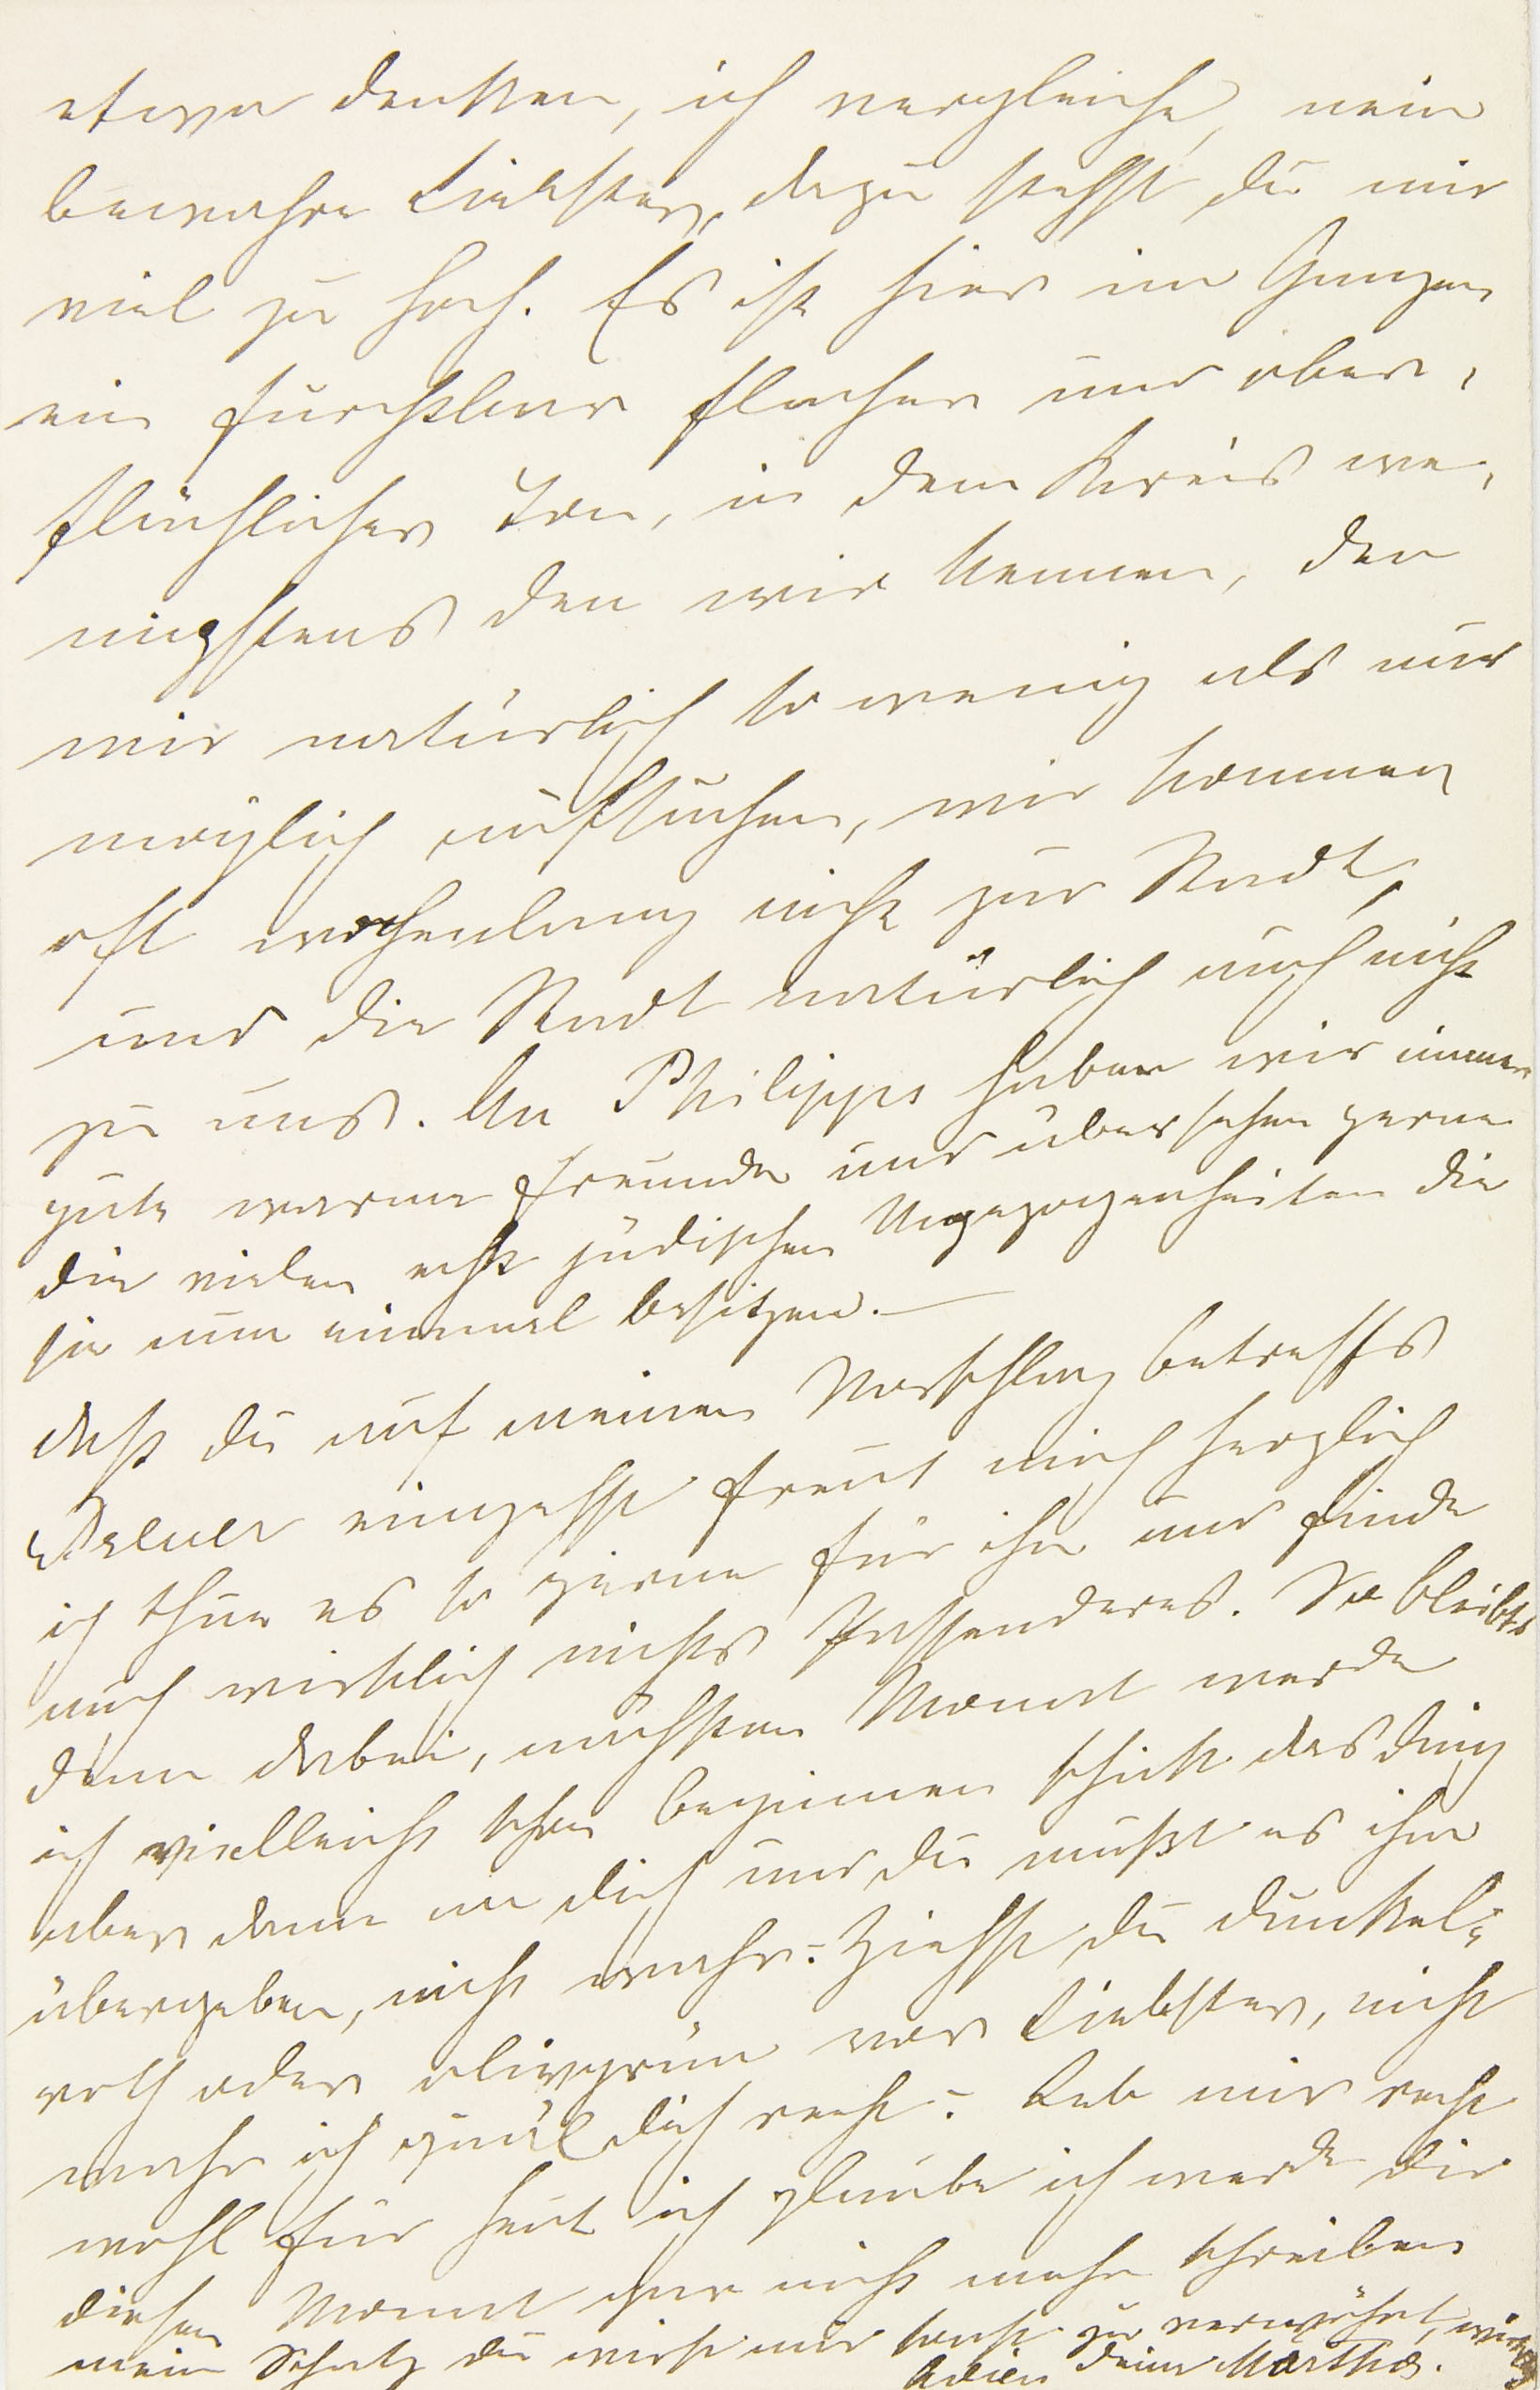 etwa denken, ich vergleiche, nein
bewahre Liebster, dazu stehst du mir
viel zu hoch. Es ist hier im Ganzen
ein furchtbar flacher und ober-
flächlicher Ton, in dem Kreis we-
nigstens den wir kennen, den
wir natürlich so wenig als nur
möglich aufsuchen, wir kommen
oft wochenlang nicht zur Stadt,
und die Stadt natürlich auch nicht
zu uns. An Philipps haben wir immer
gute warme Freunde und übersehen gerne
die vielen echt jüdischen Ungezogenheiten die
sie nun einmal besitzen. —
Daß du auf meinen Vorschlag betreffs
eingehst freut mich herzlich
ich thue es so gerne für ihn und finde
auch wirklich nichts Passenderes. So bleibts
denn dabei, nächsten Monat werde
ich vielleicht schon beginnen schick das Ding
aber dann an dich und du mußt es ihm
übergeben, nicht wahr? Ziehst du dunkel-
roth oder olivgrün vor Liebster, nicht
wahr ich quäl dich recht? Leb mir recht
wohl für heut ich glaube ich werde dir
diesen Monat gar nicht mehr schreiben
mein Schatz du wirst mir sonst zu verwöhnt,
Adieu deine Martha.